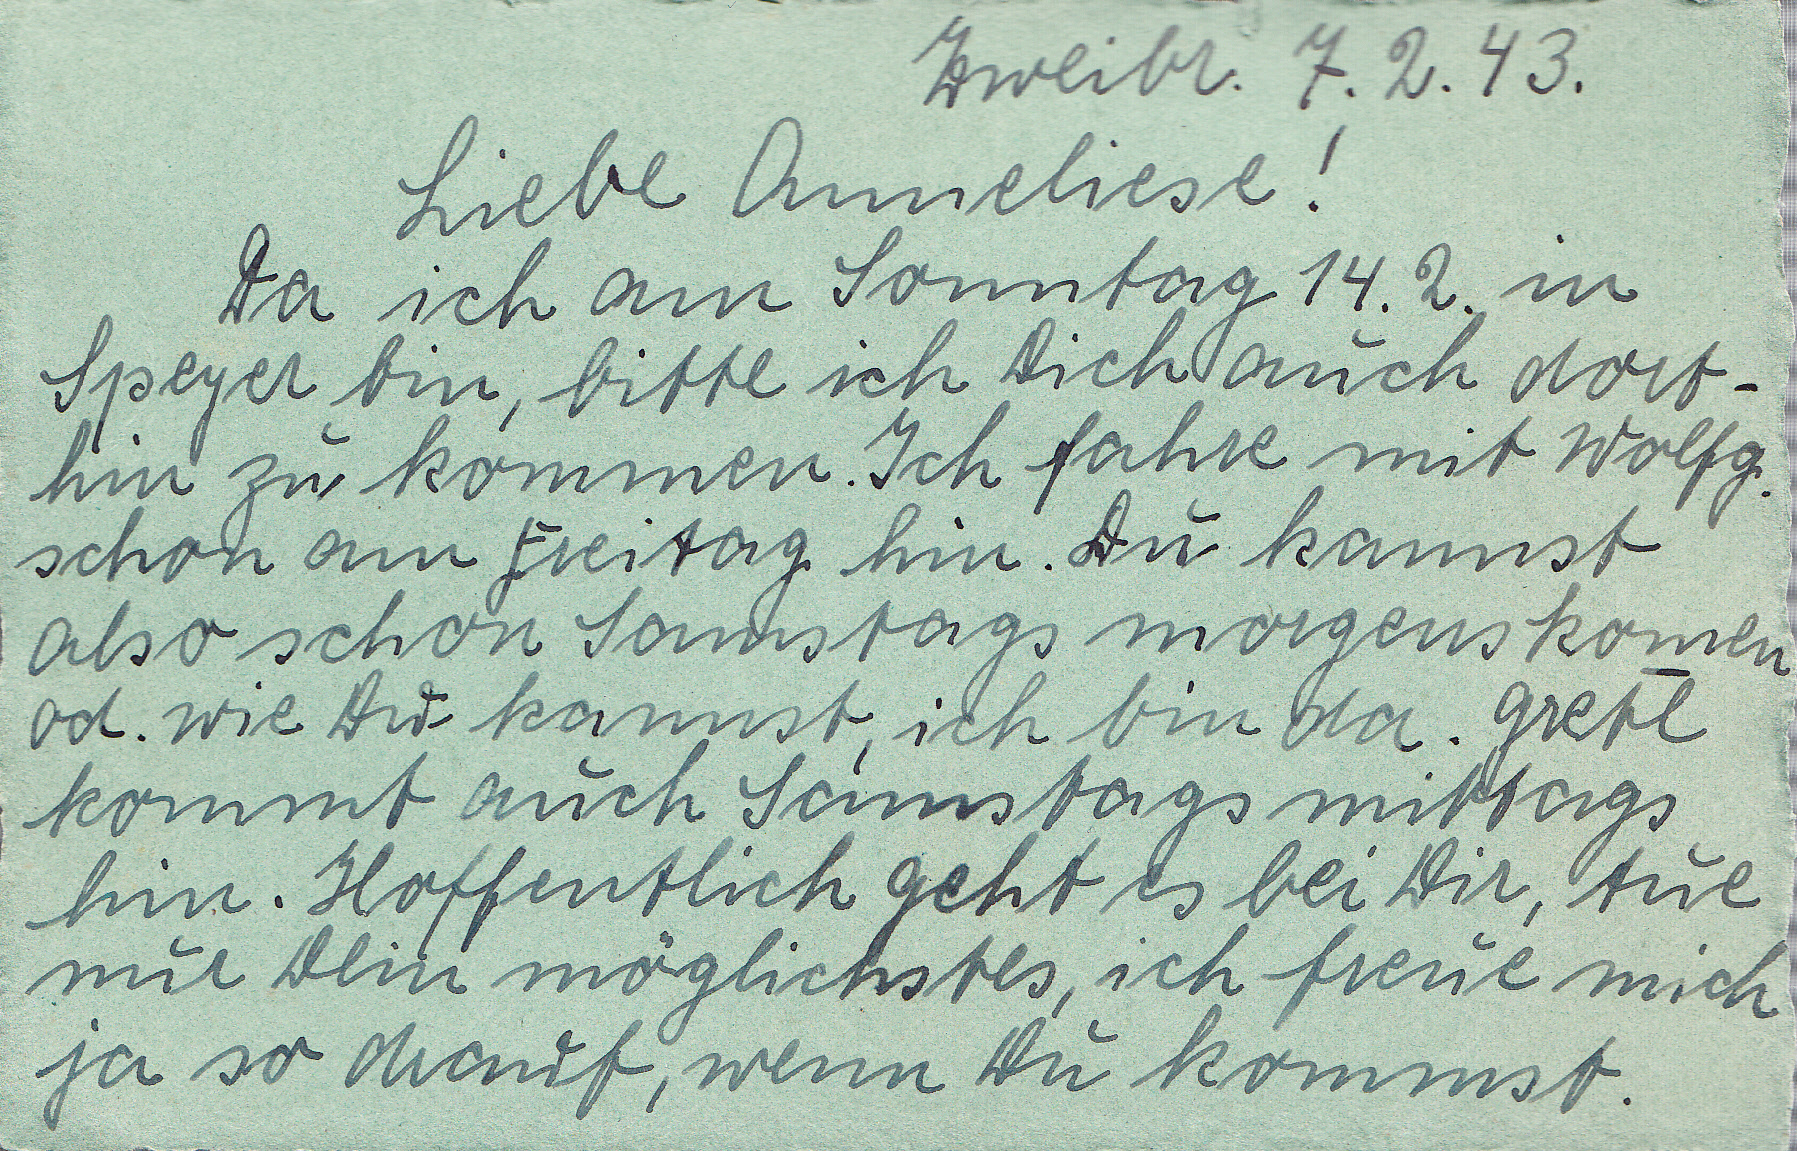 Zweibr. 7.2.43.
Liebe Anneliese!
Da ich am Sonntag 14.2. in
Speyer bin, bitte ich Dich auch dort-
hin zu kommen. Ich fahre mit Wolfg.
schon am Freitag hin. Du kannst
also schon Samstags morgens komen
od. wie Du kannst, ich bin da. Gretl
kommt auch Samstags mittags
hin. Hoffentlich geht es bei Dir, tue
nur Dein möglichstes, ich freue mich
ja so drauf, wenn Du kommst.